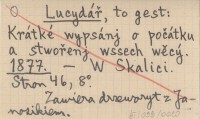 Lucydář, to gest:
Krátké wypsánj o počátku
a stwořenj wssech wěcý.
1877. – W Skalici.
Stron 46, 8°.
Zawiera drzeworyt z Ja-
nosikiem.